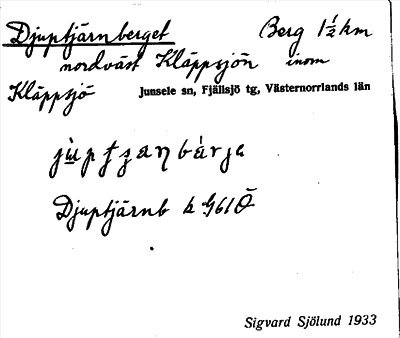 Djuptjärnberget Berg 1½ km
nordväst Kläppsjön inom
Kläppsjö Junsele sn, Fjällsjö tg, Västernorrlands län
Djuptjärnb k G61Ö
Sigvard Sjölund 1933